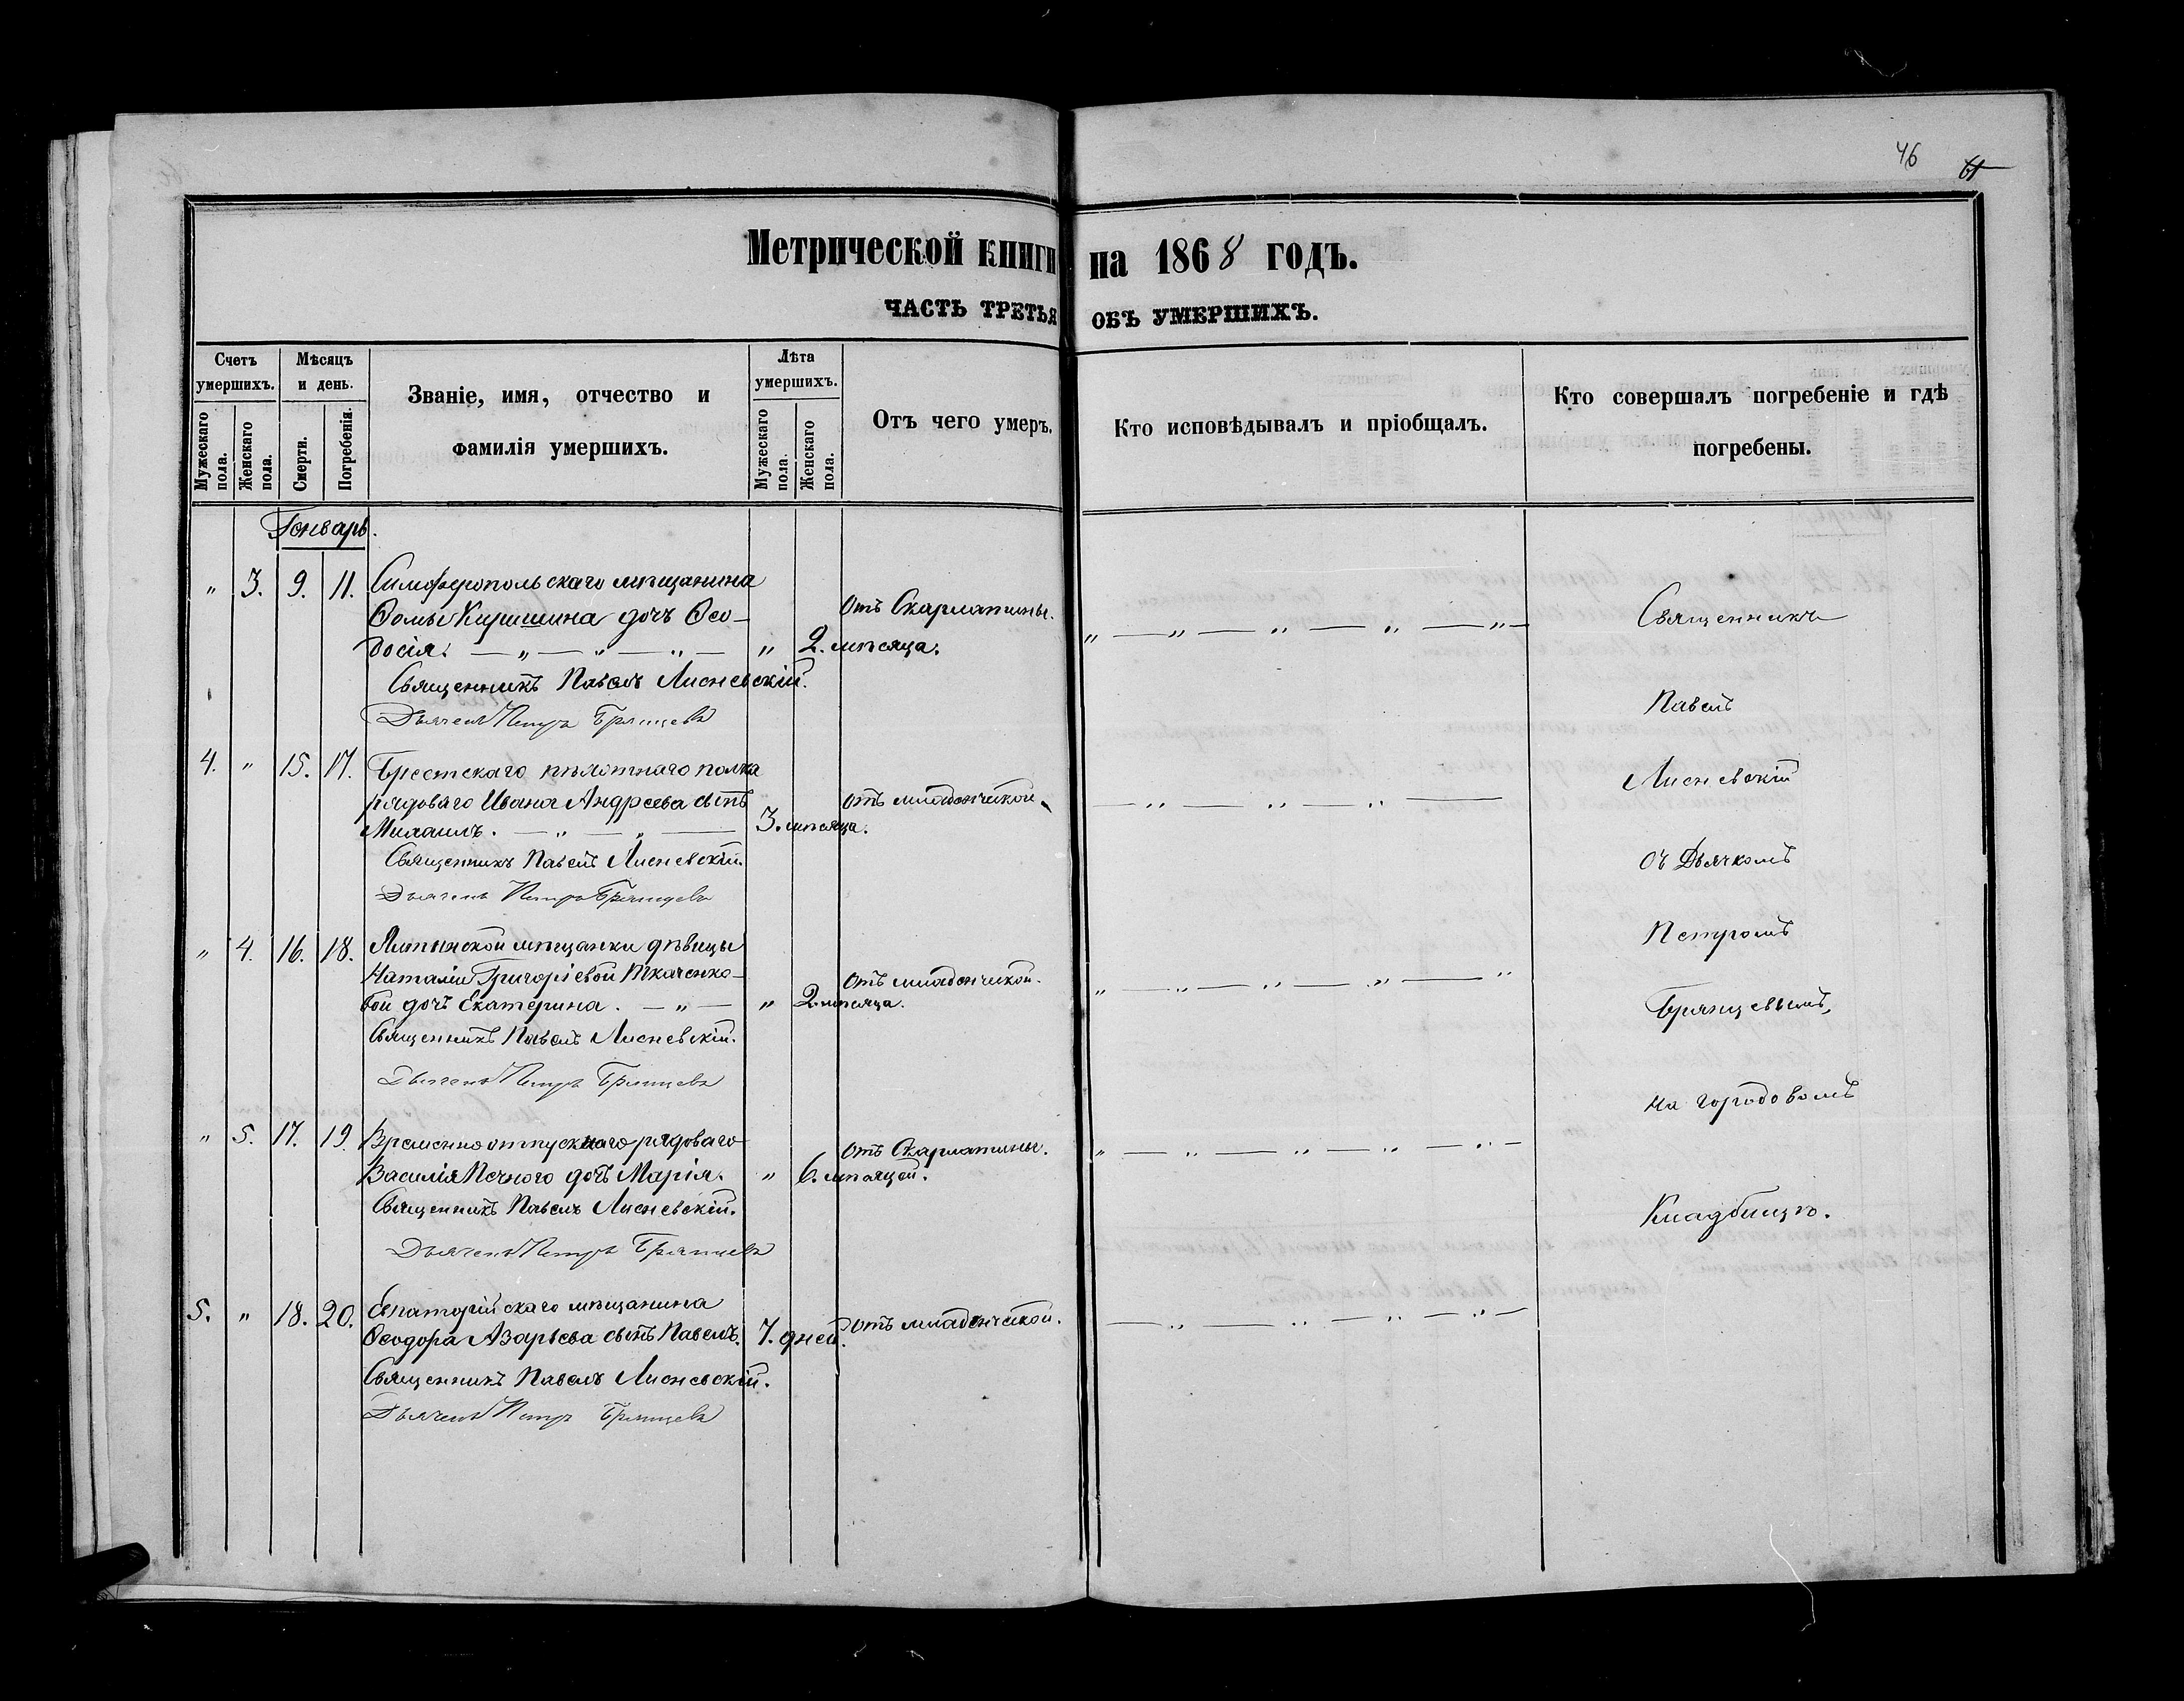 46 61
Метрической книги на 1868 годъ.
ЧАСТЬ ТРЕТЬЯ ОБЪ УМЕРШИХЪ.
Счетъ умершихъ.
Мужескаго пола.
Женскаго пола.
Мѣсяцъ и день.
Смерти.
Погребенія.
Званіе, имя, отчество и
фамилія умершихъ.
Лѣта умершихъ.
Мужескаго пола.
Женскаго пола.
Отъ чего умеръ.
Кто исповѣдывалъ и пріобщалъ.
Кто совершалъ погребеніе и гдѣ
погребены.
Генварь.
" 3. 9. 11. Симферопольскаго мѣщанина
Ѳомы Киршина дочь Ѳео- отъ Скарлатины.
досія. — " — " — " — " 2. мѣсяца. " — " — " — " — " —
Священникъ Павелъ Лисневскій.
Дьячекъ Петръ Брянцевъ
4. " 15. 17. Брестскаго пѣхотнаго полка
рядоваго Ивана Андреева сынъ отъ младенческой.
Михаилъ. — " — " — 3. мѣсяца. — " — " — " —
Священникъ Павелъ Лисневскій.
Дьячекъ Петръ Брянцевъ
" 4. 16. 18. Литинской мѣщанки дѣвицы
Наталіи Григоріевой Ткаченко- отъ младенческой.
вой дочь Екатерина. — " — " 2. мѣсяца. " — " — " — " — "
Священникъ Павелъ Лисневскій.
Дьячекъ Петръ Брянцевъ
" 5. 17. 19. Временноотпускнаго рядоваго отъ Скарлатины.
Василія Печного дочь Марія. " 6. мѣсяцей. " — " — " — " — " —
Священникъ Павелъ Лисневскій.
Дьячекъ Петръ Брянцевъ
5. " 18. 20. Евпаторійскаго мѣщанина
Ѳеодора Азарьева сынъ Павелъ. 7. дней. отъ младенческой. — " — " — " — " —
Священникъ Павелъ Лисневскій.
Дьячекъ Петръ Брянцевъ
Священникъ
Павелъ
Лисневскій
съ Дьячкомъ
Петромъ
Брянцевымъ,
на городовомъ
Кладбищѣ.